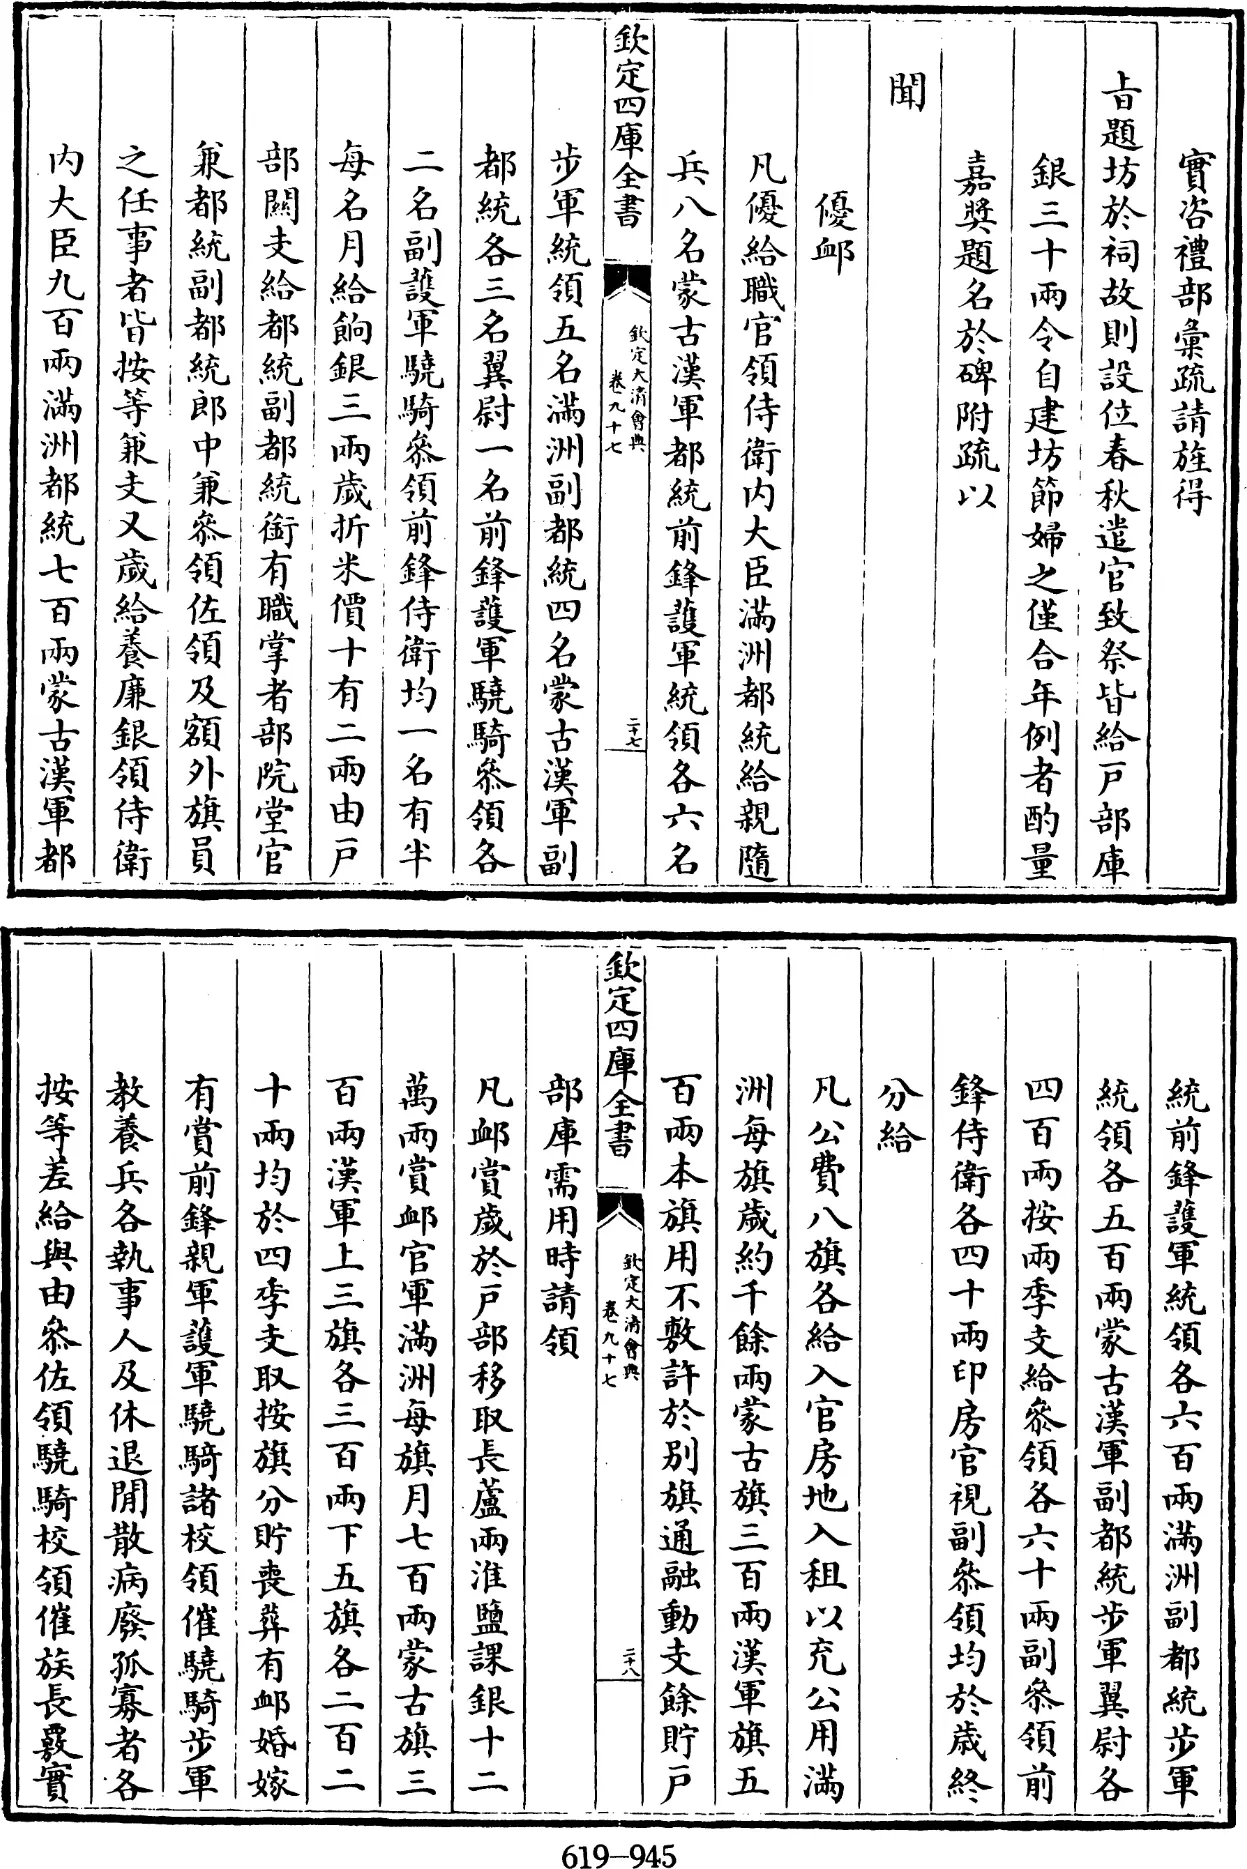 實咨禮部彚疏請旌得
旨題坊於祠故則設位春秋遣官致祭皆給戸部庫
銀三十兩令自建坊節婦之僅合年例者酌量
嘉奬題名於碑附疏以
聞
優䘏
凡優給職官領侍衛内大臣滿洲都統給親隨
兵八名蒙古漢軍都統前鋒護軍統領各六名
欽定四庫全書
欽定大清會典
卷九十七
二十七
步軍統領五名滿洲副都統四名蒙古漢軍副
都統各三名翼尉一名前鋒護軍驍騎叅領各
二名副護軍驍騎叅領前鋒侍衛均一名有半
每名月給餉銀三兩歲折米價十有二兩由戸
部關支給都統副都統銜有職掌者部院堂官
兼都統副都統郎中兼叅領佐領及額外旗員
之任事者皆按等兼支又歲給養廉銀領侍衛
内大臣九百兩滿洲都統七百兩蒙古漢軍都
統前鋒護軍統領各六百兩滿洲副都統步軍
統領各五百兩蒙古漢軍副都統步軍翼尉各
四百兩按兩季支給叅領各六十兩副叅領前
鋒侍衛各四十兩印房官視副叅領均於歲終
分給
凡公費八旗各給入官房地入租以充公用滿
洲每旗歲約千餘兩蒙古旗三百兩漢軍旗五
百兩本旗用不敷許於别旗通融動支餘貯戸
欽定四庫全書
欽定大清會典
卷九十七
二十八
部庫需用時請領
凡䘏賞歲於戸部移取長蘆兩淮鹽課銀十二
萬兩賞䘏官軍滿洲每旗月七百兩蒙古旗三
百兩漢軍上三旗各三百兩下五旗各二百二
十兩均於四季支取按旗分貯喪葬有䘏婚嫁
有賞前鋒親軍護軍驍騎諸校領催驍騎步軍
教養兵各執事人及休退閒散病廢孤寡者各
按等差給與由叅佐領驍騎校領催族長覈實
619-945